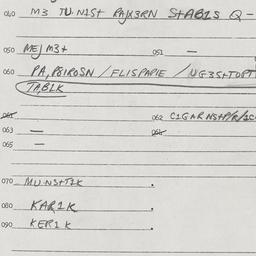 040 M3 TU.N1St PAJX3RN StAB1S Q -
050 MEJM3t 051 -
060 PA,P8IROSN / FLISPAPIE / UG3StTOPT
TAB1K
061 062 C1GAR NStP/R/1C
063 -
064
065 -
070 MU.NStT1K .
080 KAR1K .
090 KER1K .